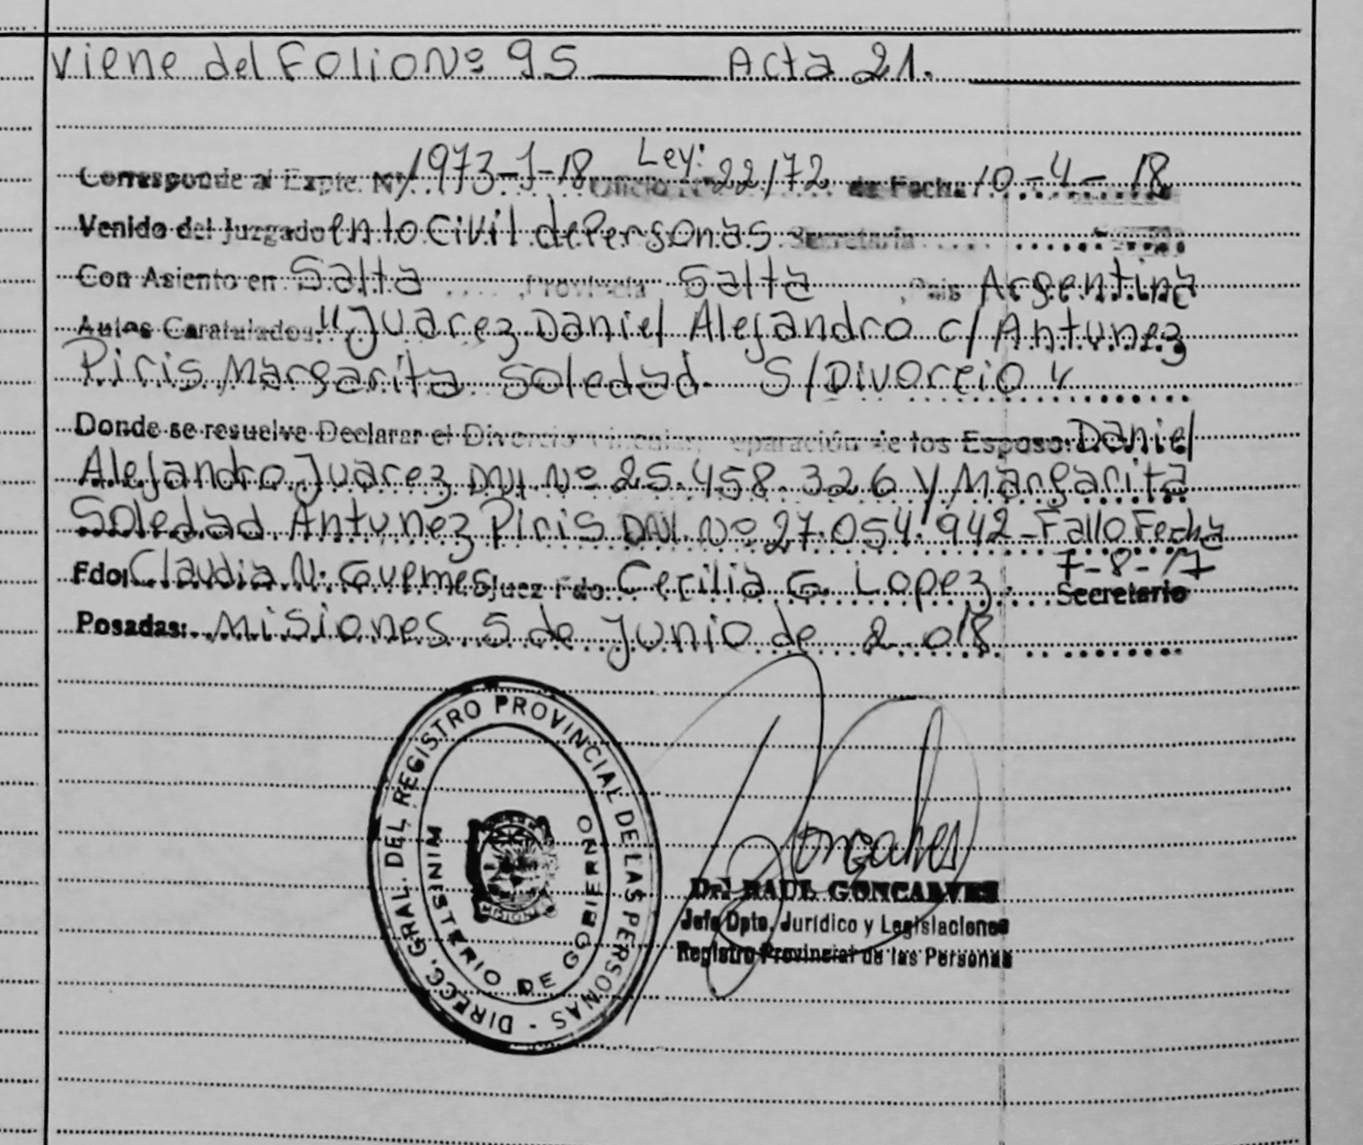 Viene del Folio Nº 95 Acta 21.
Corresponde al Expte. Nº 1973-J-18 Ley: 22172 de Fecha 10-4-18
Venido del Juzgado en lo Civil de Personas Secretaria
Con Asiento en Salta Provincia Salta Pais Argentina
Autos Caratulados: "Juarez Daniel Alejandro c/ Antunez
Piris Margarita Soledad S/ Divorcio"
Donde se resuelve Declarar el Divorcio vincular, separación de los Esposo: Daniel
Alejandro Juarez DNI Nº 25.458.326 y Margarita
Soledad Antunez Piris DNI Nº 27.054.942 - Fallo Fecha
7-8-17
Fdo: Claudia N. Guemes Juez Fdo. Cecilia G. Lopez Secretario
Posadas: Misiones 5 de Junio de 2018
DIRECC. GRAL. DEL REGISTRO PROVINCIAL DE LAS PERSONAS -
MINISTERIO DE GOBIERNO
Goncalves
RAUL GONCALVES
Jefe Dpto. Jurídico y Legislaciones
Registro Provincial de las Personas